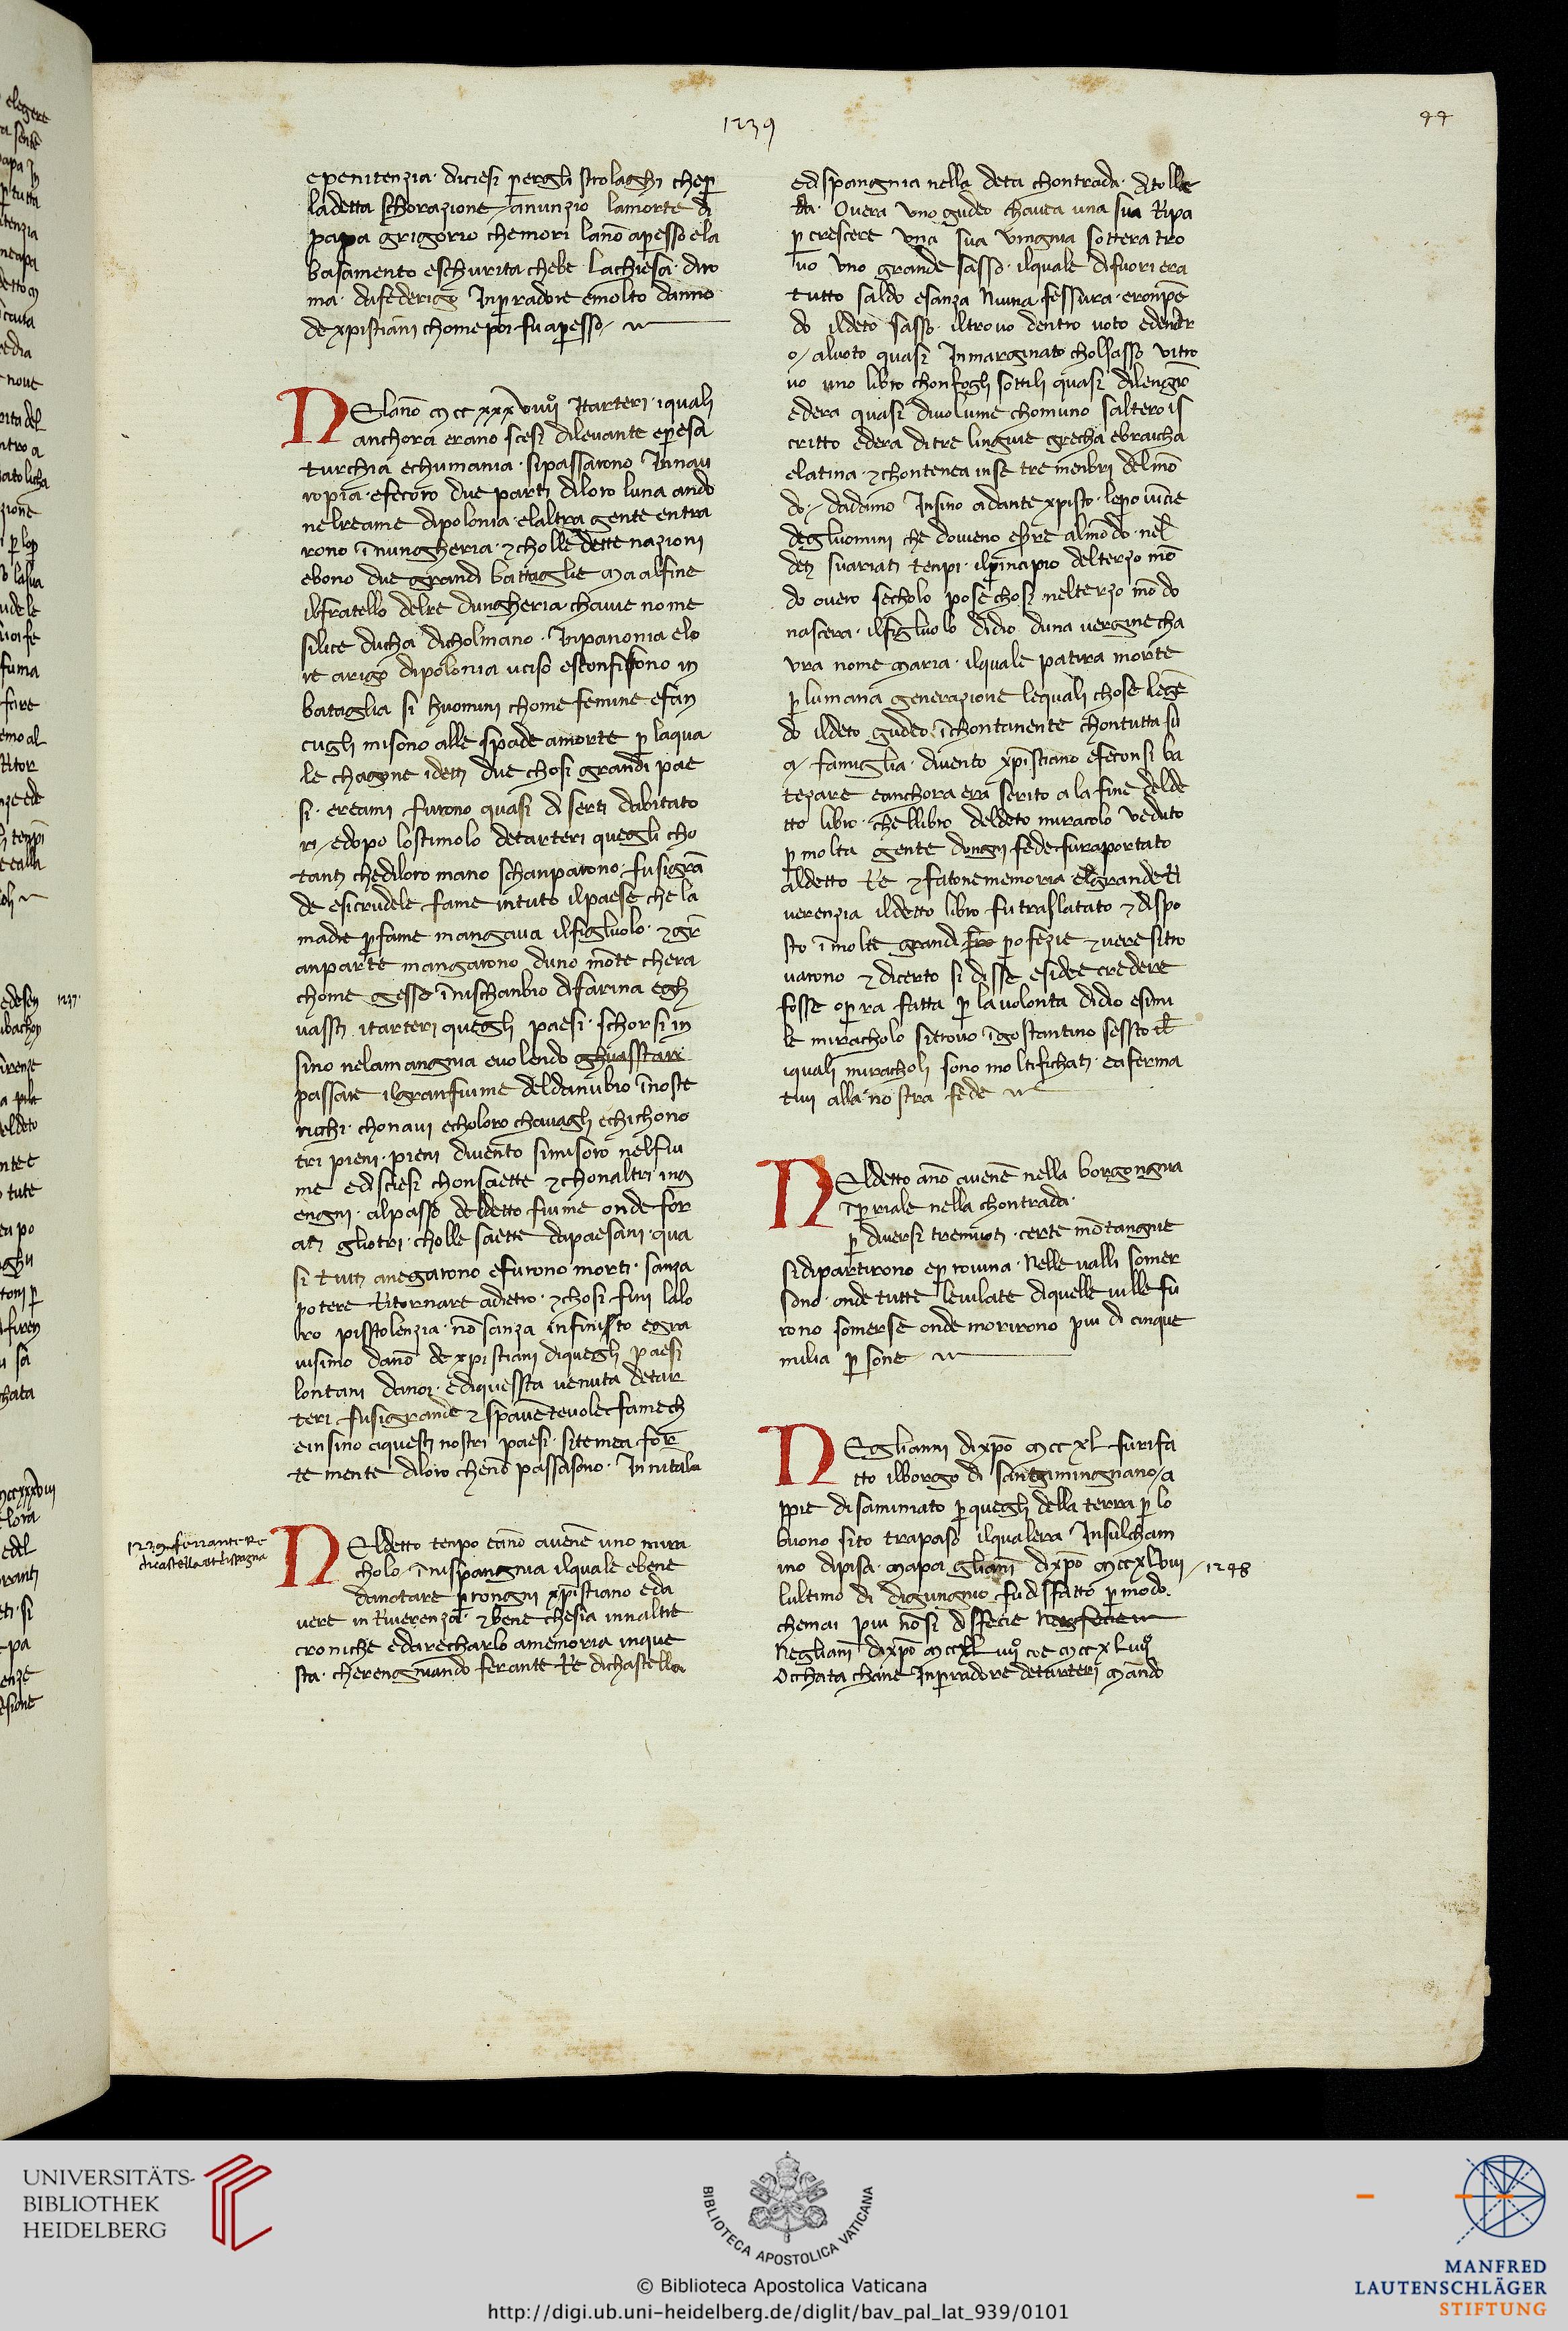 1239
epenitenzia · diciesi pergli strolaghi chep
ladetta schorazione anunzio lamorte di
papa grigorio chemori lanō apresso ela
basamento eschurita chebe · lachiesa · diro
ma · dafederigo Inpradore emolto danno
dexpistiani chomepoi fuapresso
NElanō mccxxxviiij Itarteri · iquali
anchora erano scesi dilevante epresa
turchia echumania · sipassarono Innau
ropia · efecoro due parti diloro luna ando
nelreame dipolonia · elaltra gente entra
rono īnungheria · 7 cholle dette nazioni
ebono due grandi battaglie ma alfine
ilfratello delre dungheria chaue nome
silice ducha dicholmano · Inpanonia elo
re arigo dipolonia uciso esconfissono in
bataglia si huomini chome femine efan
cugli misono alle spade amorte p laqua
le chagone idetti due chosi grandi pae
si · ereami furono quasi diserti dabitato
ri edopo lostimolo detarteri quegli cho
tanti chediloro mano schanparono · fusigrā
de esicrudele fame intuto ilpaese che la
madre p fame mangaua ilfigluolo · 7 gr
anparte mangarono duno mōte chera
chome gesso īnischanbio difarina egli
uassti itarteri quegli paesi · schorsi in
sino nelamangnia euolendo ghuasstare
passare ilgranfiume deldanubio īnoste
richi · chonaui echoloro chauagli echichono
tri pieni · pieni diuento simisoro nelfiu
me edisciesi chonsaette 7 chonaltri ing
engni · alpasso deldetto fiume onde for
ati gliotri · cholle saette dapaesani · qua
si tuti anegarono efurono morti · sanza
potere Ritornare adietro · 7 chosi fini lalo
bro pisstolenzia · nō sanza infinissto egra
uisimo danō dexpistiani diquegli paesi
lontani danoi · ediquessta uenuta detar
teri fusigrande 7 spauēteuole famech
einsino aquesti nostri paesi · sitemea for
te mente diloro chenō passasono · In nitala
1239 ferrante Re
dicastella at di spagna
NEldetto tenpo eanō auenē uno mira
cholo · īnispangnia ilquale ebene
danotare p rongni xpistiano eda
uere in Riuerenza · 7 bene chesia innaltre
croniche edarecharlo amemoria inque
sta · cherengnando ferante Re dichastella
edispangnia nella deta chontrada · ditolle
tta · Ouera uno gudeo chauea una sua Ripa
p crescere una sua uingnia sottera tro
uo uno grande sasso · ilquale difuoriera
tutto saldo esanza Niuna fessura · eronpē
do ildeto sasso · iltrouo dentro uoto edentr
o alvoto quasi Inmarginato cholsasso vitro
uo uno libro chonfogli sottili quasi dilengnō
edera quasi diuolume chomuno salterois
critto edera ditre lingnie grecha ebraicha
elatina · 7 chontenea inse tre menbri delmō
do · dadamo Insino adante xpisto · lepo iūcie
degluomini che douieno eseŕe almōdo · nel
deti suariati tenpi · ilprincipio delterzo mō
do ouero secholo pose chosi nelterzo mōdo
nascera · ilfigluolo didio duna uergine cha
vra nome maria · ilquale patira morte
p lumana generazione lequali chose legē
do ildeto gudeo īchontanente chontutta su
a famiglia · diuento xpistiano efeconsi ba
tezare eanchora era scrito a la fine delde
tto libro · chellibro deldeto miracolo veduto
p molta gente dongni fede furaportato
aldetto Re 7 fatone memoria elgrande Ri
uerenzia ildetto libro fu traslatato 7 dispo
sto īmolte grandi pofezie 7 uere sitro
uarono 7 dicerto si disse esidee credere
fosse opra fatta p la uolonta didio esimi
le miracholo sitrouo īgostantino sessto
iquali miracholi sono moltifichati · eaferma
tiui alla nostra fede
NEldetto anō auenē nella borgongnia
īpriale nella chontrada ·
p diuersi tremuoti · certe mōtangnie
sidipartirono ep rouina · Nelle ualli somer
sono · onde tutte leuilate diquelle uille fu
rono somerse onde morirono piu di cinque
milia p sone
NEglianni dixpō mccxl fu rifa
tto ilborgo di santgimingnano a
ppie disaminiato p quegli della terra p lo
buono sito trapaso ilqualera Insulcham
ino dipisa · mapoi glianī dixpō mccxlviij 1248
lultimo di digungnio fudisfatto p modo
chemai piu nō si disfecie
Neglianī dixpō mccxl iiijº coe mccxlviiijº
Occhata chane Inpradore detarteri mando
UNIVERSITÄTS-
BIBLIOTHEK
HEIDELBERG
BIBLIOTECA APOSTOLICA VATICANA
© Biblioteca Apostolica Vaticana
http://digi.ub.uni-heidelberg.de/diglit/bav_pal_lat_939/0101
MANFRED
LAUTENSCHLÄGER
STIFTUNG